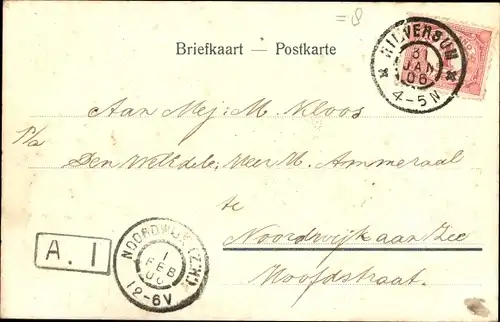 =8
Briefkaart — Postkarte
HILVERSUM
31 JAN 06
4-5 N
Aan Mej: M. Kloos
P/a
Den WelEdele Heer M. Ammeraal
te
Noordwijk aan Zee
Hoofdstraat.
A. 1
NOORDWIJK (Z.H.)
1 FEB 06
12-6V